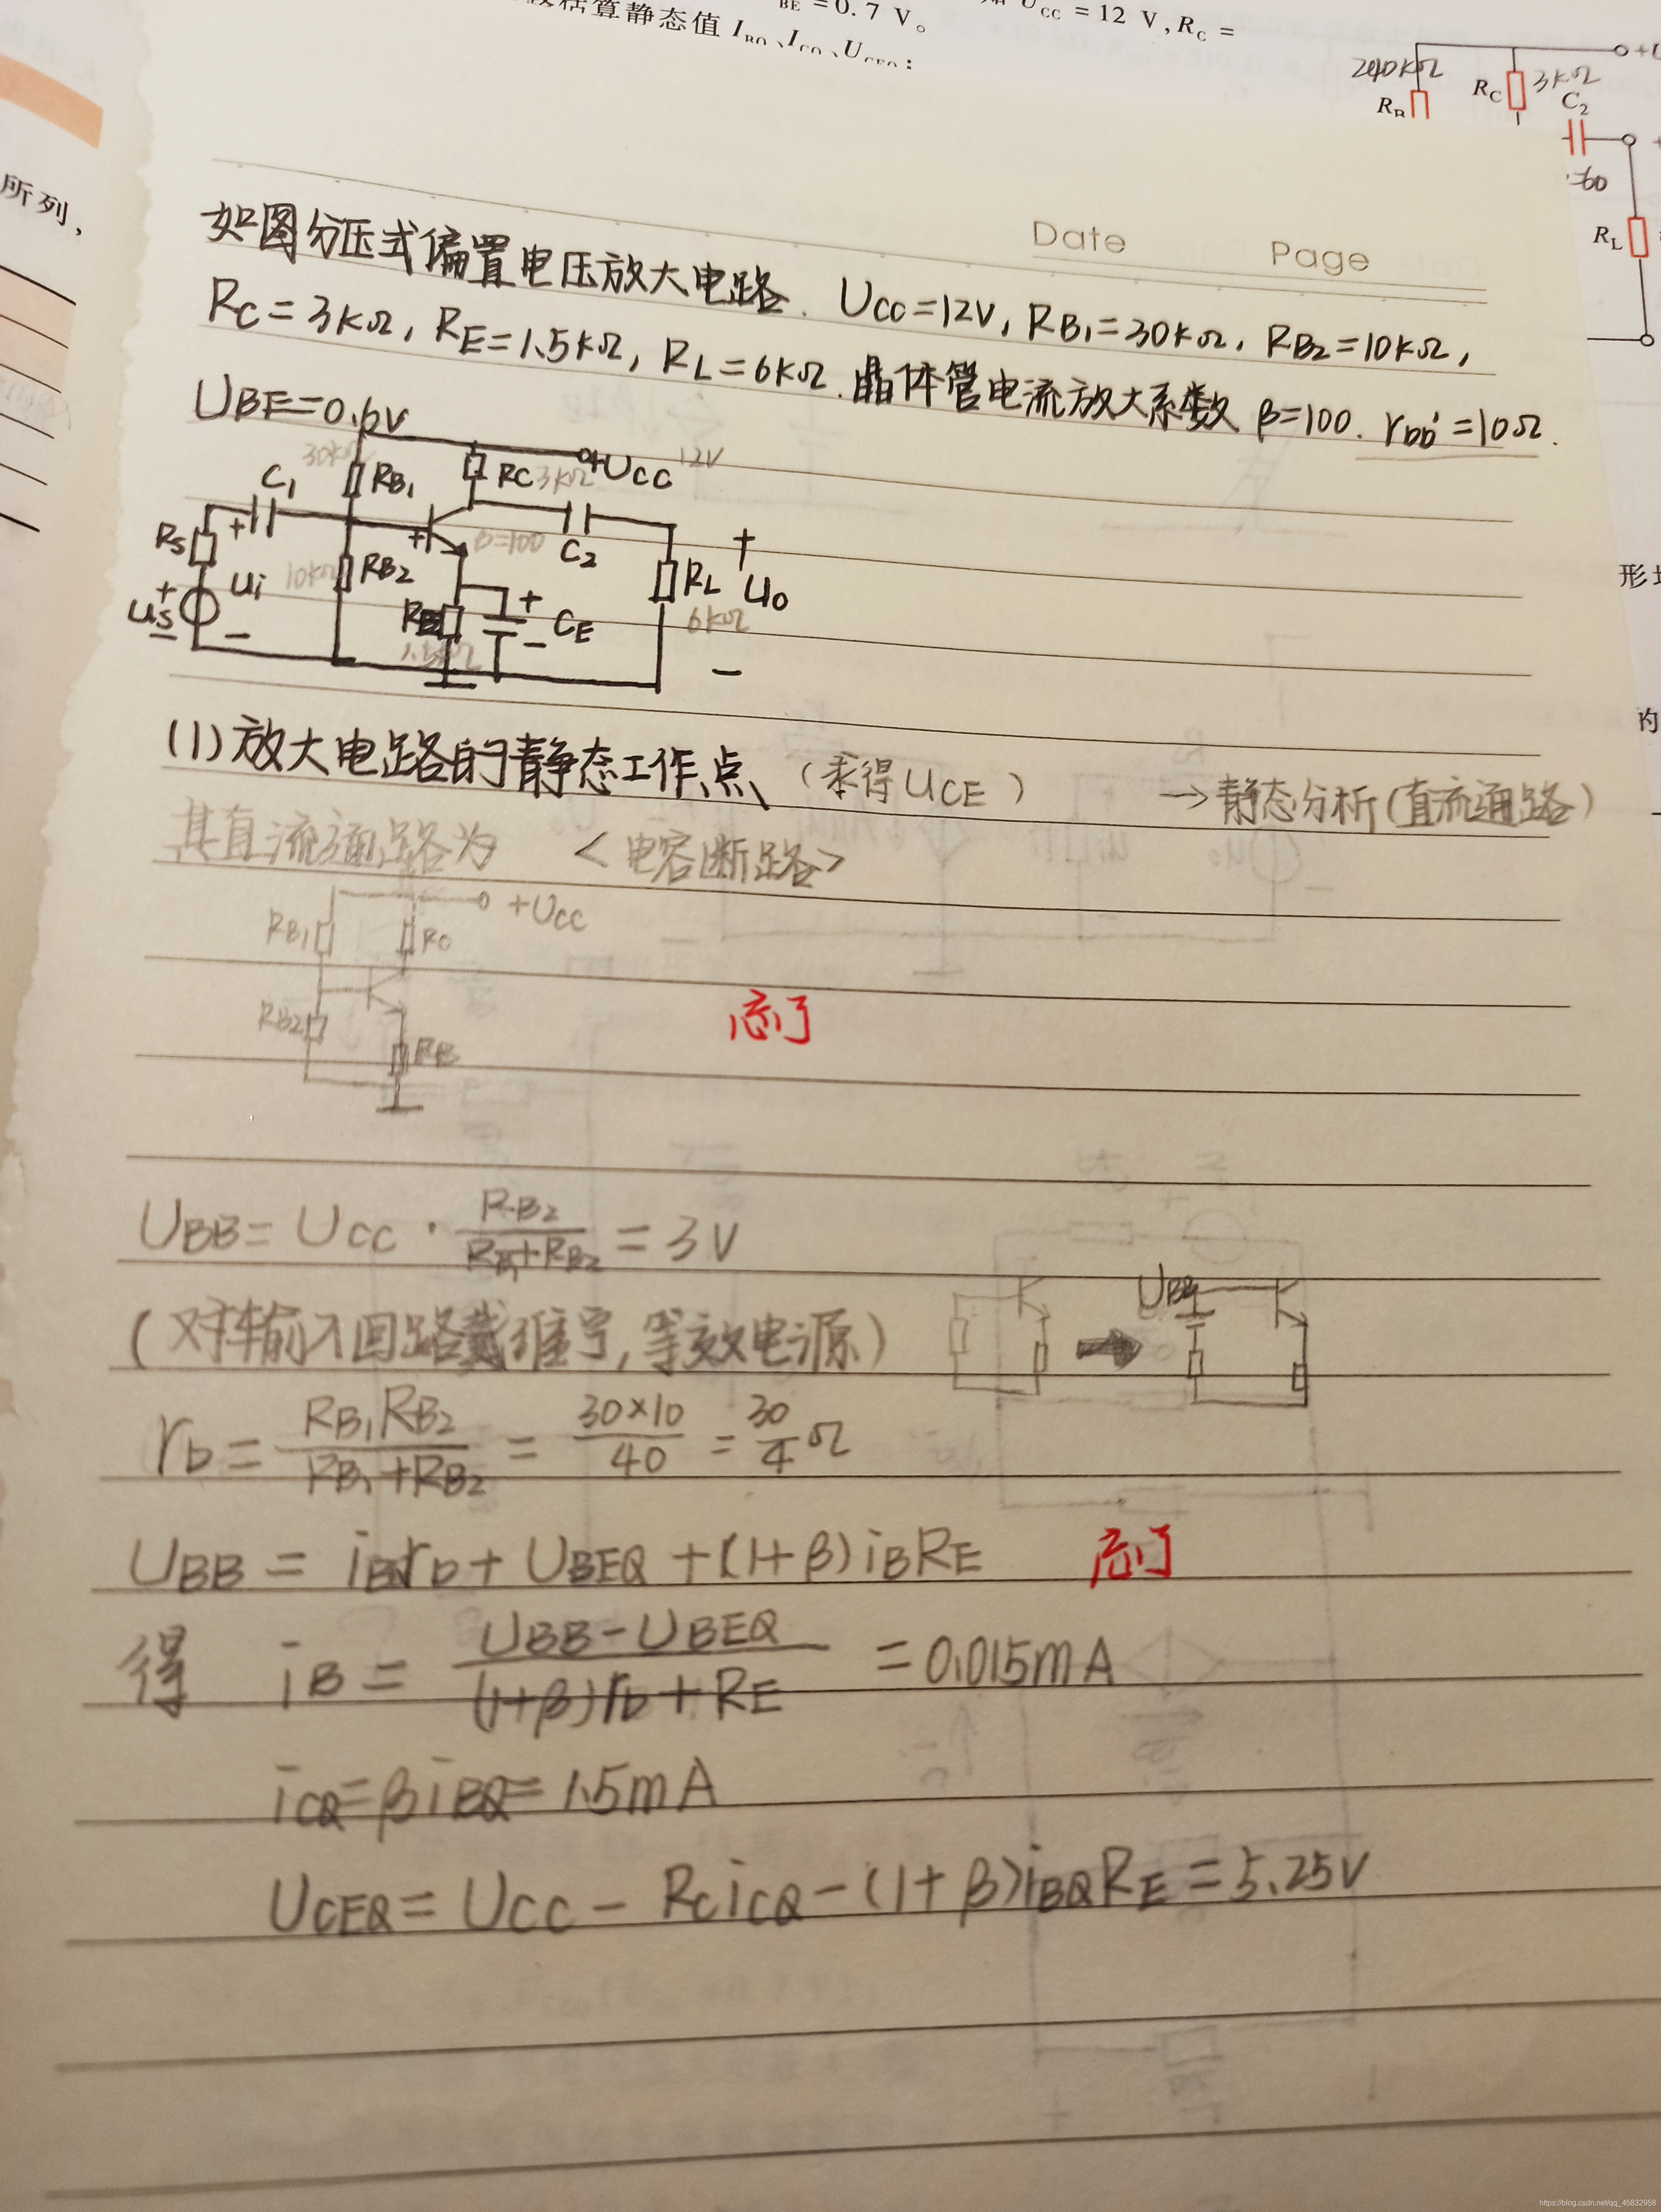 BE = 0. 7 V。
U_CC = 12 V, R_C =
估算静态值 I_BQ、I_CQ、U_CEQ:
240kΩ
R_B
R_C
3kΩ
C_2
=60
R_L
所列,
形
的
Date Page
如图分压式偏置电压放大电路. U_CC=12V, R_B1=30kΩ, R_B2=10kΩ,
R_C=3kΩ, R_E=1.5kΩ, R_L=6kΩ. 晶体管电流放大系数 β=100. r_bb'=10Ω.
U_BE=0.6V
30kΩ
R_B1
R_C 3kΩ
+U_CC 12V
C_1
R_S
+
β=100
C_2
+
10kΩ
R_B2
R_L
U_o
6kΩ
+
U_S
−
U_i
−
+
R_E
C_E
−
1.5kΩ
−
(1)放大电路的静态工作点 (求得U_CE) →静态分析(直流通路)
其直流通路为 <电容断路>
+U_CC
R_B1
R_C
R_B2
R_E
忘了
U_BB = U_CC · R_B2/(R_B1+R_B2) = 3V
U_BB
(对车前入回路戴维宁,等效电源)
r_b = R_B1R_B2/(R_B1+R_B2) = 30×10/40 = 30/4 Ω
U_BB = i_BQ r_b + U_BEQ + (1+β) i_B R_E 忘了
得 i_B = (U_BB − U_BEQ)/((1+β)r_b + R_E) = 0.015mA
i_CQ = β i_BQ = 1.5mA
U_CEQ = U_CC − R_C i_CQ − (1+β) i_BQ R_E = 5.25V
https://blog.csdn.net/qq_45832958